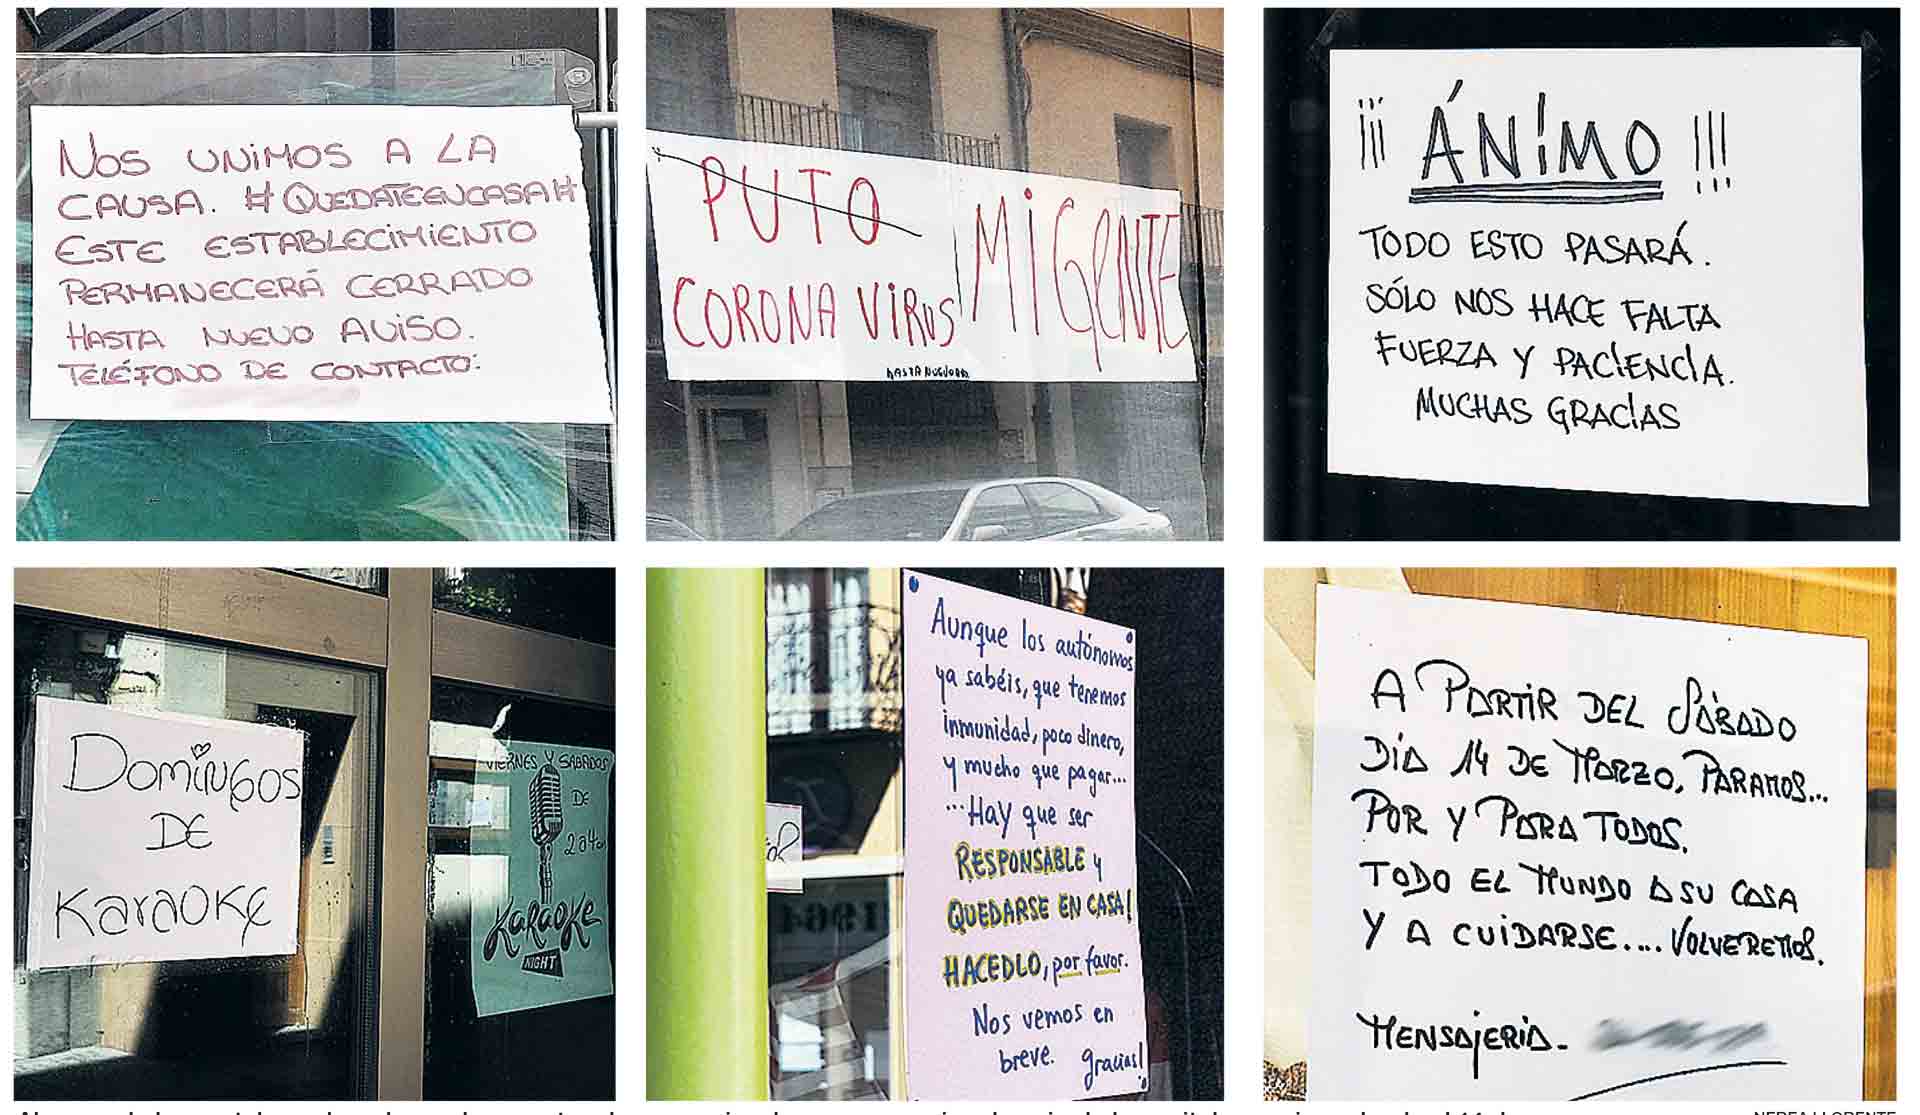 NOS UNIMOS A LA
CAUSA. #QUEDATEENCASA#
ESTE ESTABLECIMIENTO
PERMANECERÁ CERRADO
HASTA NUEVO AVISO.
TELÉFONO DE CONTACTO:
PUTO
CORONA VIRUS
MI GENTE
¡¡¡ ÁNIMO !!!
TODO ESTO PASARÁ.
SÓLO NOS HACE FALTA
FUERZA Y PACIENCIA.
MUCHAS GRACIAS
DOMINGOS
DE
KARAOKE
VIERNES Y SABADOS
DE
2 a 4
KARAOKE
NIGHT
Aunque los autónomos
ya sabéis, que tenemos
inmunidad, poco dinero,
y mucho que pagar...
...Hay que ser
RESPONSABLE y
QUEDARSE EN CASA!
HACEDLO, por favor.
Nos vemos en
breve. gracias!
A PARTIR DEL SÁBADO
DÍA 14 DE MARZO, PARAMOS...
POR Y PARA TODOS.
TODO EL MUNDO A SU CASA
Y A CUIDARSE.... VOLVEREMOS.
MENSAJERIA.
NEREA LLORENTE